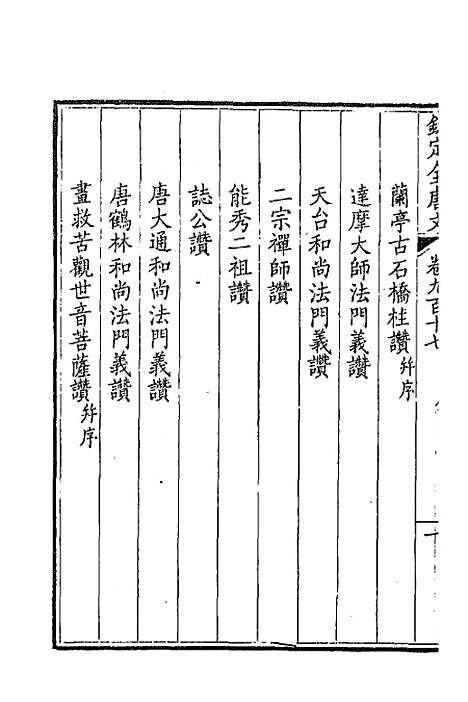 欽定全唐文
卷九百十七
蘭亭古石橋柱讚并序
達摩大師法門義讚
天台和尚法門義讚
二宗禪師讚
能秀二祖讚
誌公讚
唐大通和尚法門義讚
唐鶴林和尚法門義讚
畫救苦觀世音菩薩讚并序